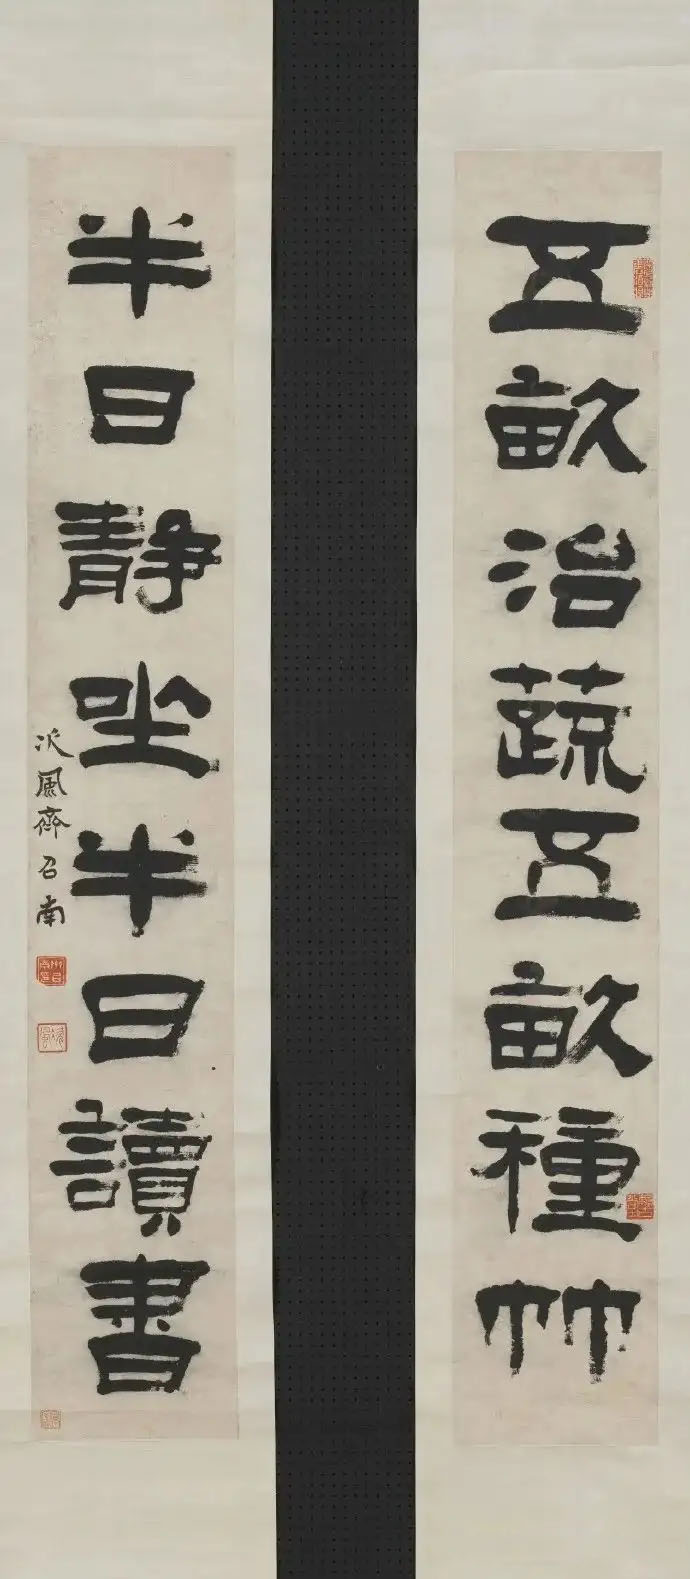 五畝治蔬五畝種竹
半日靜坐半日讀書
次風齊召南